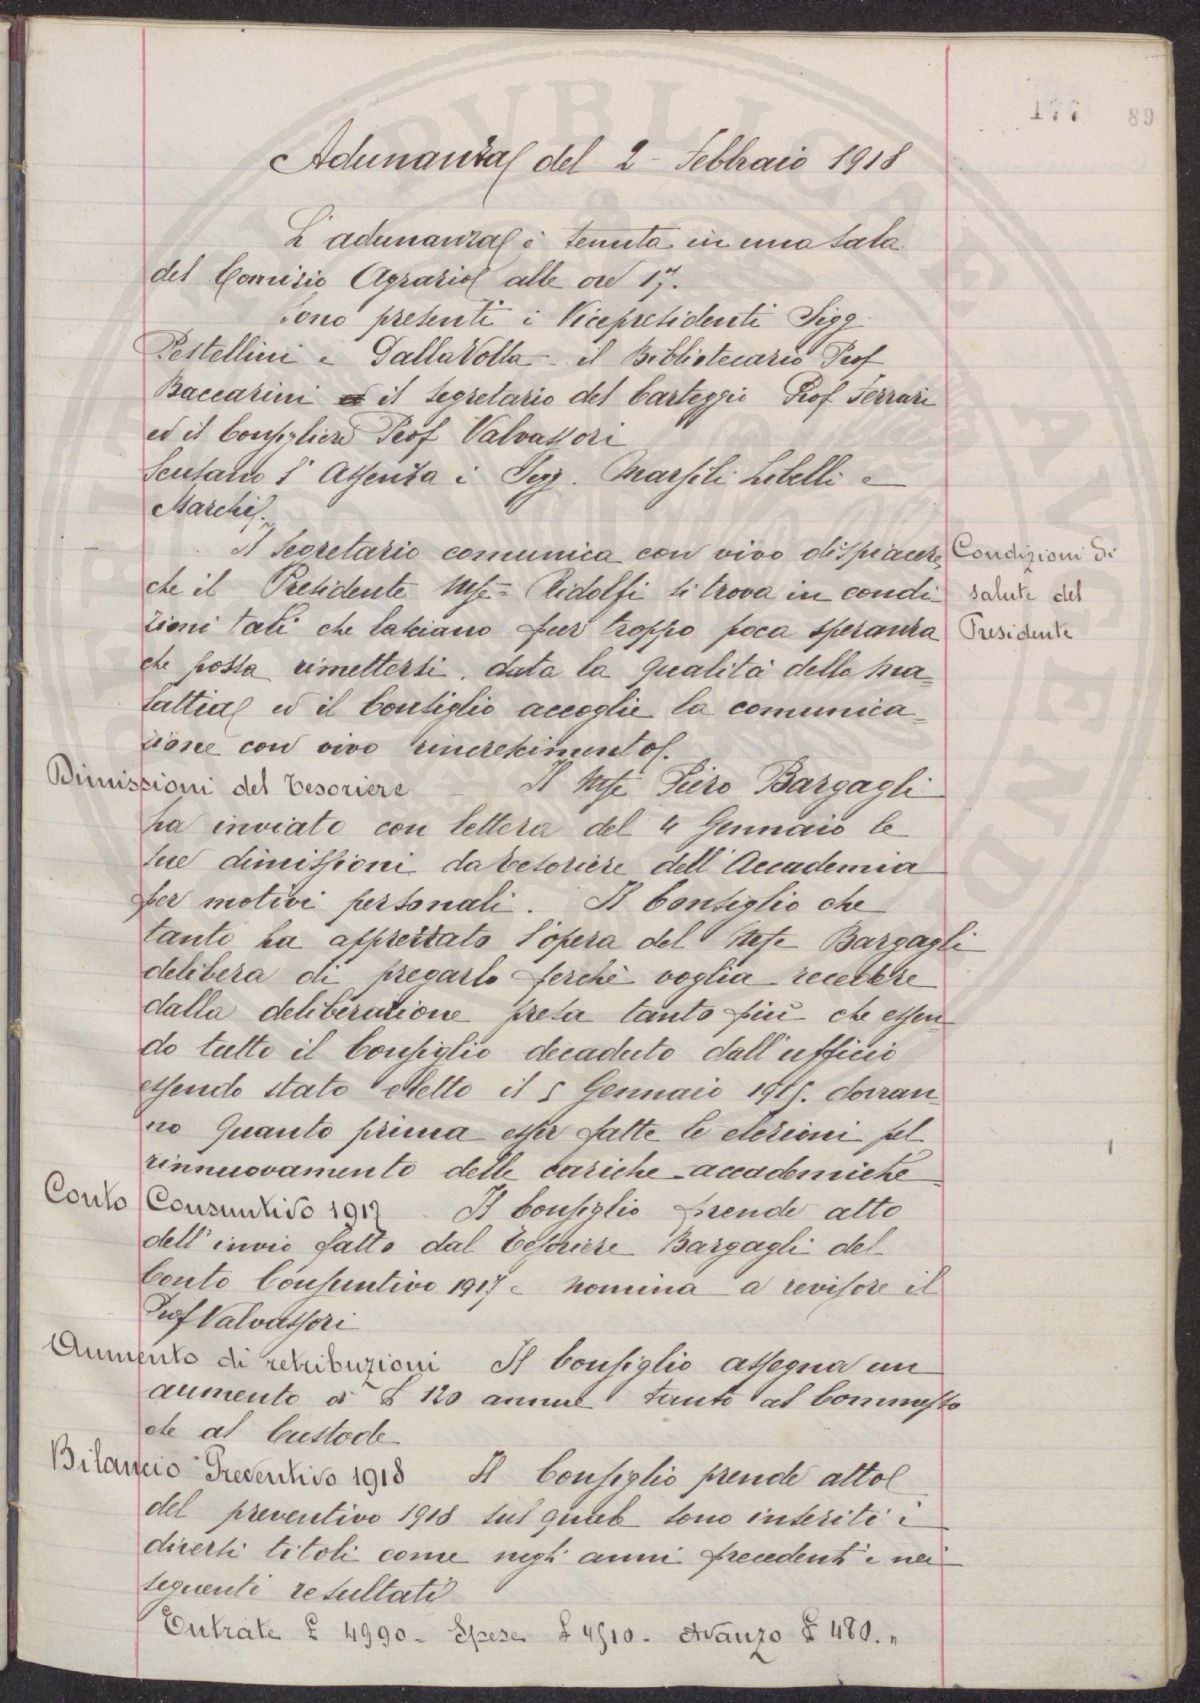 177 89
Adunanza del 2 Febbraio 1918
L'adunanza è tenuta in una sala
del Comizio Agrario alle ore 17.
Sono presenti i Vicepresidenti Sigg.
Pestellini e Dalla Volta - il Bibliotecario Prof
Baccarini il segretario del Carteggio Prof Ferrari
ed il Consigliere Prof Valvassori
Scusano l'assenza i Sigg. Marsili Libelli e
Marchi.
Il Segretario comunica con vivo dispiacere
Condizioni di
che il Presidente Mse Ridolfi si trova in condi
salute del
zioni tali che lasciano pur troppo poca speranza
Presidente
che possa rimettersi, data la qualità della ma=
lattia ed il Consiglio accoglie la comunica=
zione con vivo rincrescimento.
Dimissioni del Tesoriere Il Mse Piero Bargagli
ha inviato con lettera del 4 Gennaio le
sue dimissioni da Tesoriere dell'Accademia
per motivi personali. Il Consiglio che
tanto ha apprezzato l'opera del Mse Bargagli
delibera di pregarlo perchè voglia recedere
dalla deliberazione presa tanto più che essen=
do tutto il Consiglio decaduto dall'ufficio
essendo stato eletto il 5 Gennaio 1915. dovran=
no quanto prima esser fatte le elezioni pel
rinnuovamento delle cariche accademiche
Conto Consuntivo 1917 Il Consiglio prende atto
dell'invio fatto dal Tesoriere Bargagli del
Conto Consuntivo 1917 e nomina a revisore il
Prof Valvassori
Aumento di retribuzioni Il Consiglio assegna un
aumento di £ 120 annue tanto al Commesso
che al Custode
Bilancio Preventivo 1918 Il Consiglio prende atto
del preventivo 1918 sul quale sono inseriti i
diversi titoli come negli anni precedenti e nei
seguenti resultati
Entrate £ 4990 - Spese £ 4510 - Avanzo £ 480. "